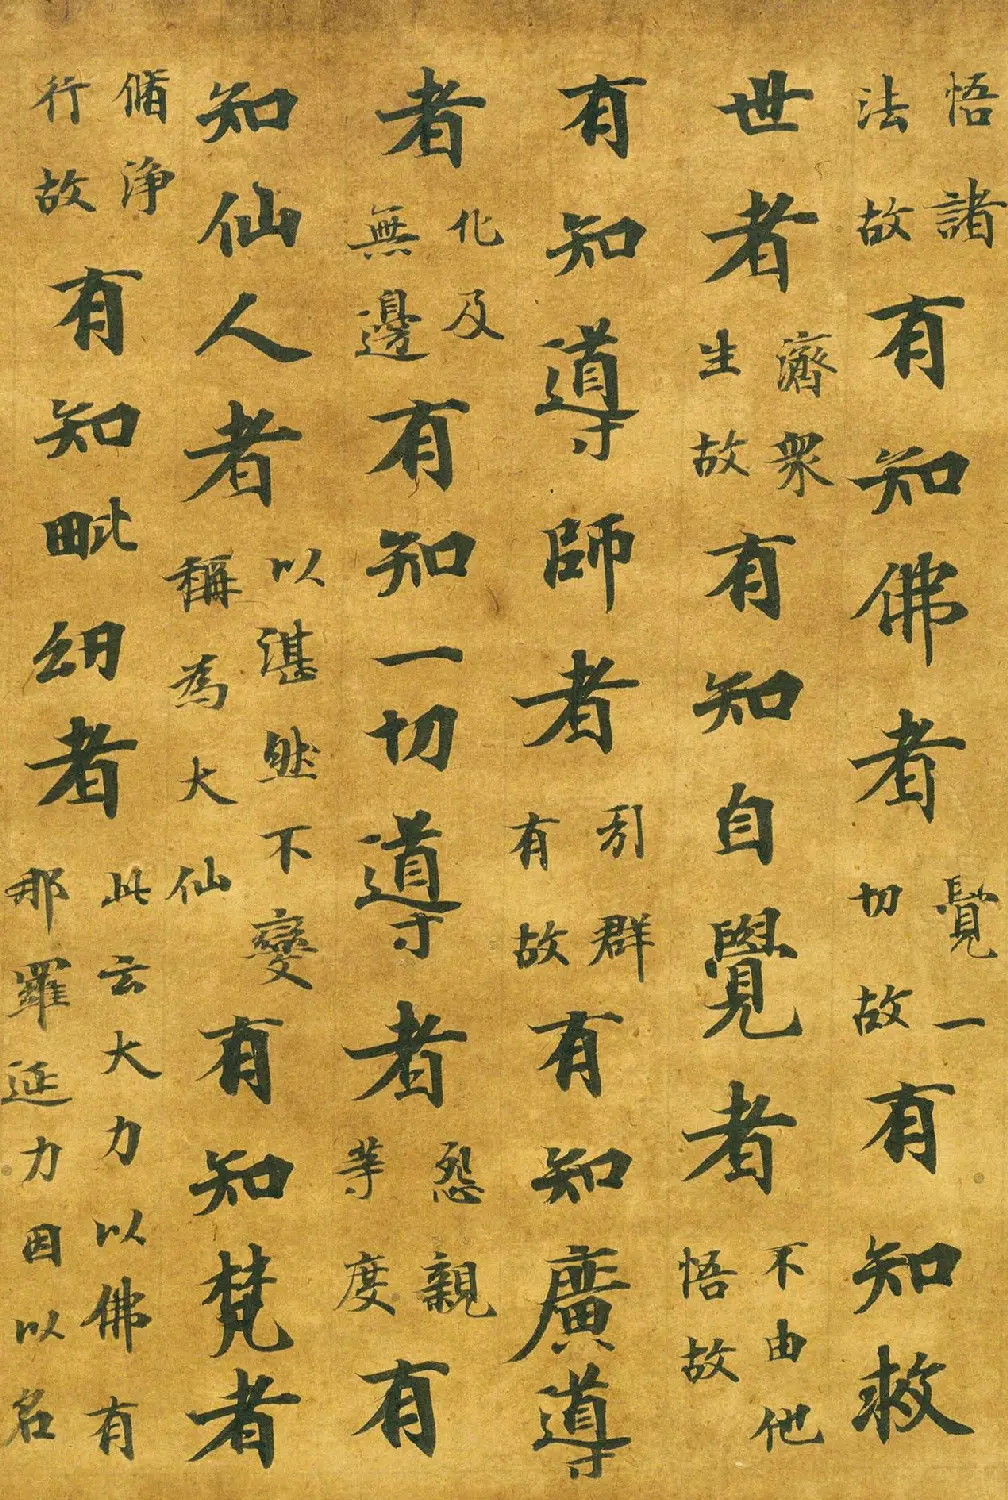 悟諸法故有知佛者覺一切故有知救
世者濟衆生故有知自覺者不由他悟故
有知導師者引群有故有知廣導
者化及無邊有知一切導者怨親等度有
知仙人者以湛然不變稱為大仙有知梵者
脩淨行故有知毗紐者此云大力以佛有那羅延力因以名